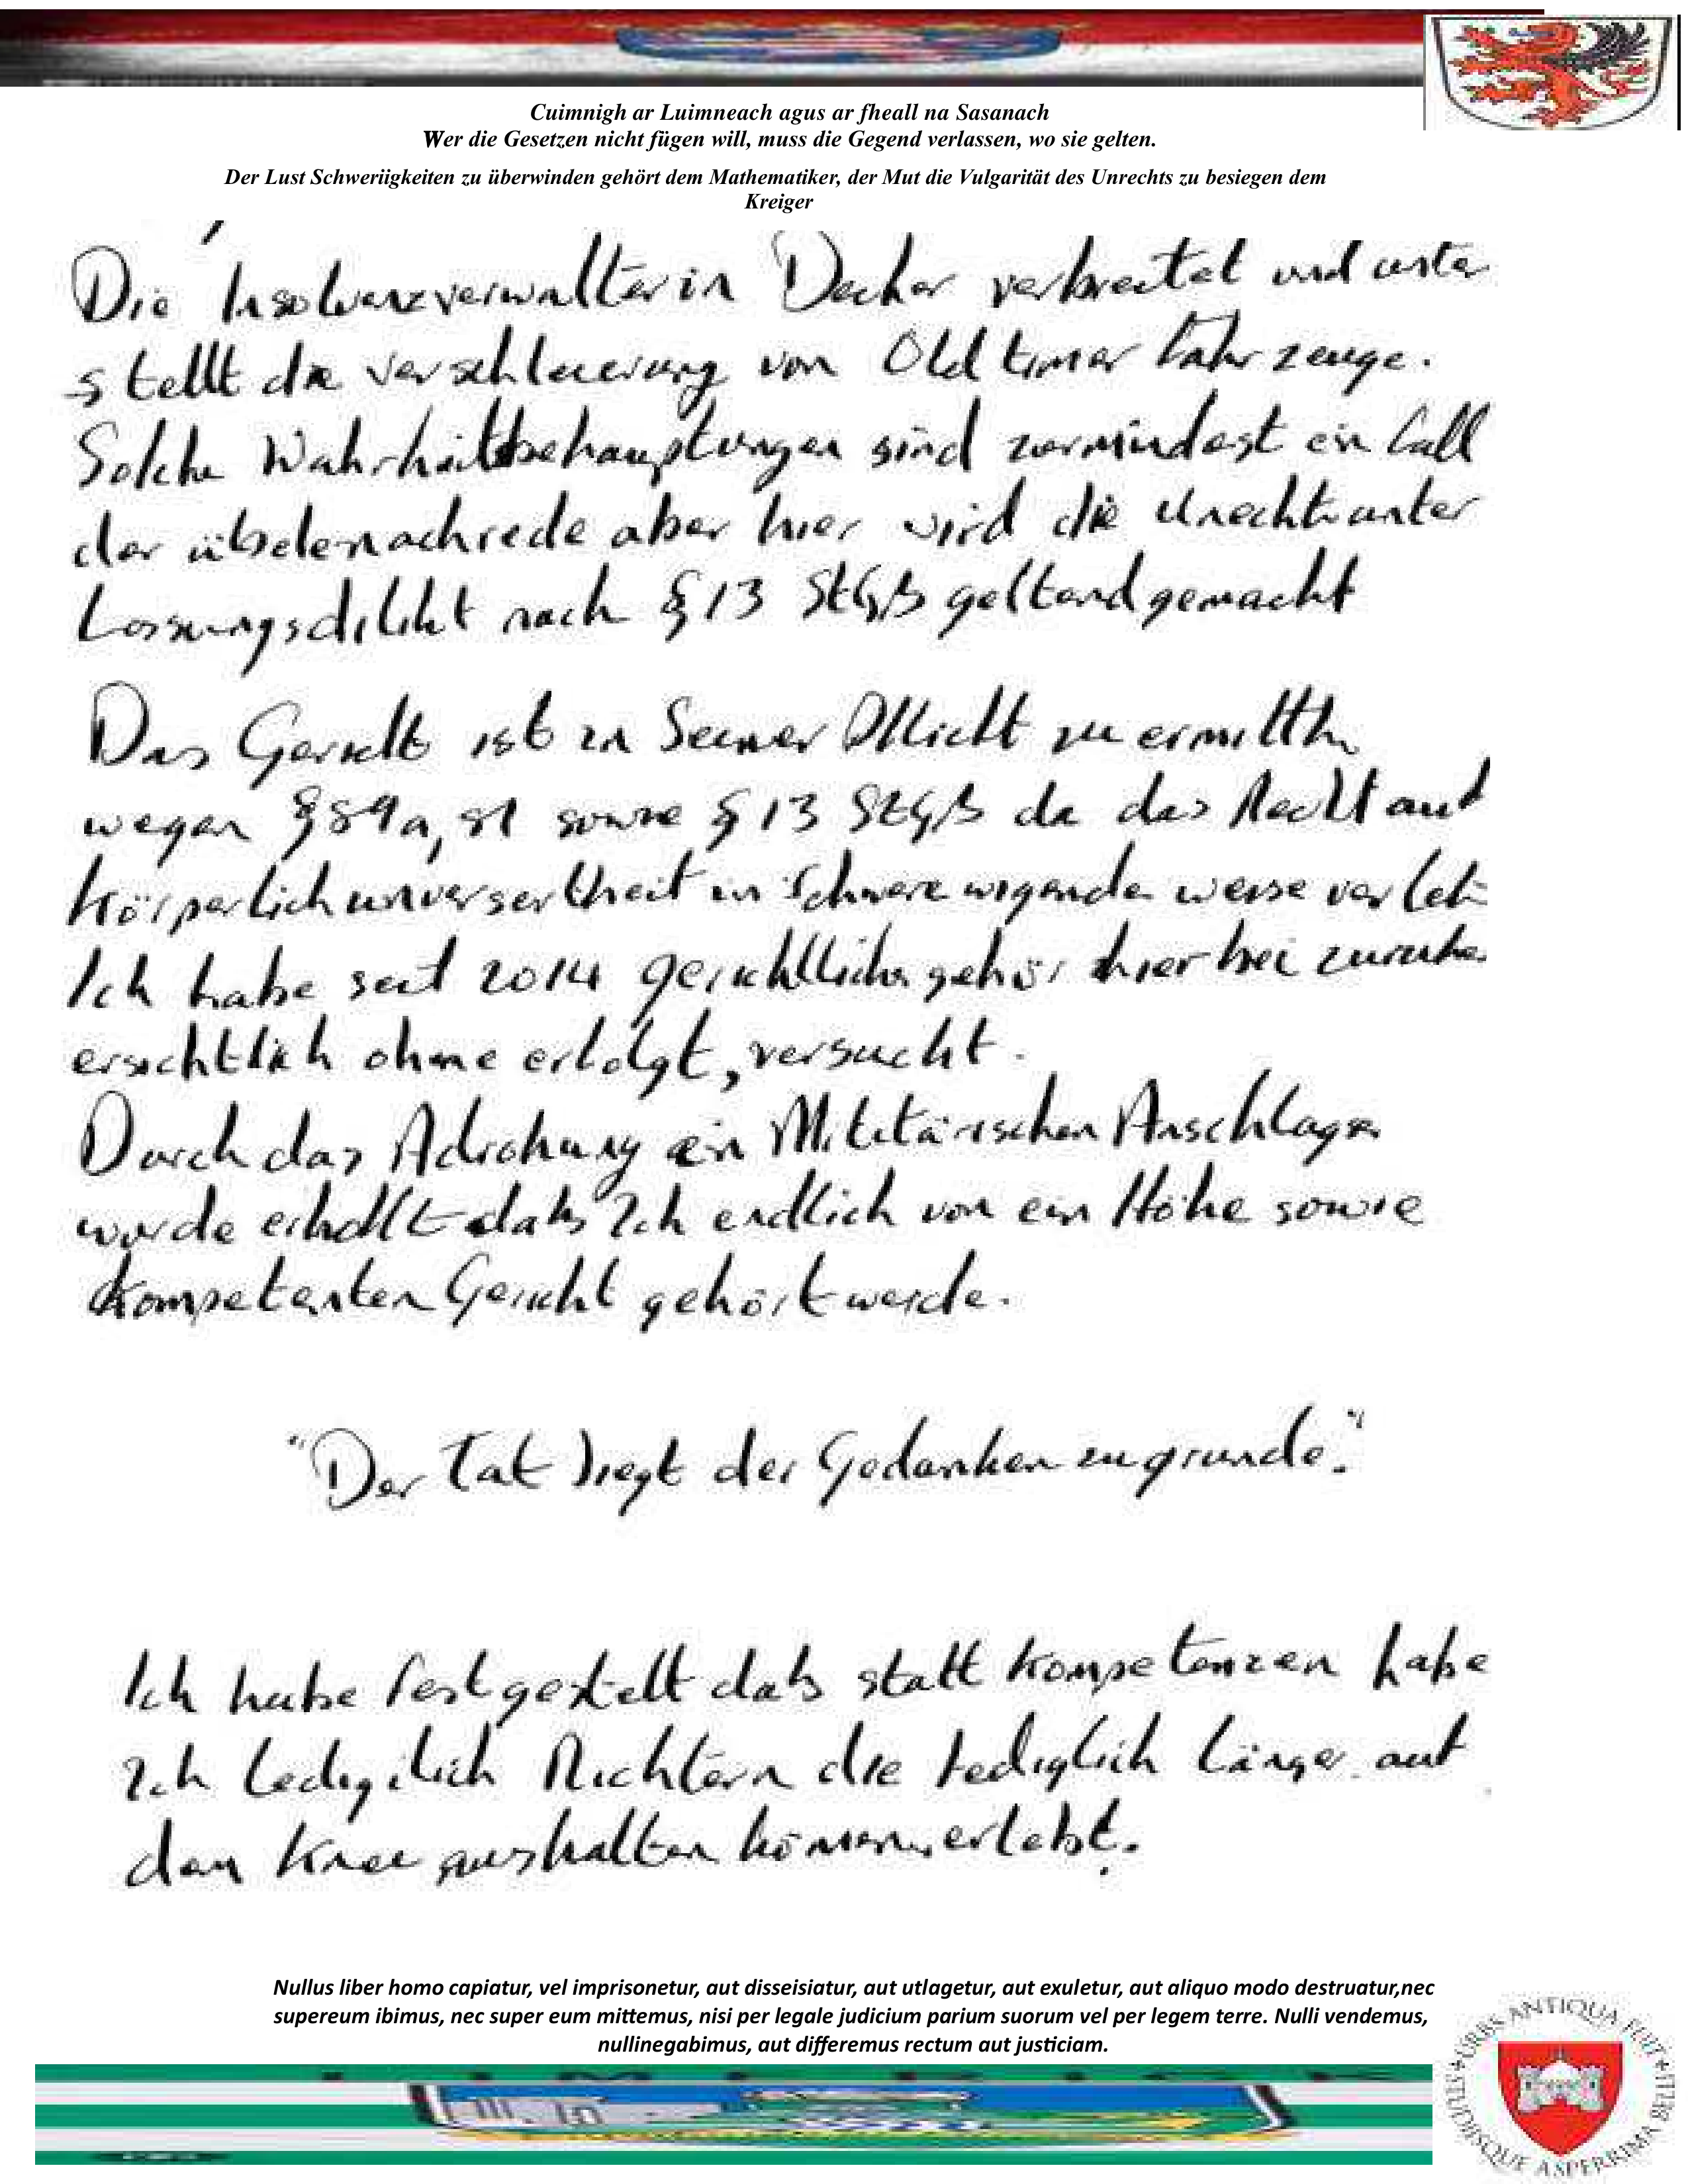 Cuimnigh ar Luimneach agus ar fheall na Sasanach
Wer die Gesetzen nicht fügen will, muss die Gegend verlassen, wo sie gelten.
Der Lust Schweriigkeiten zu überwinden gehört dem Mathematiker, der Mut die Vulgarität des Unrechts zu besiegen dem
Kreiger
Die Insolvenzverwalterin Decker verbreitet und unter
stellt die verschleuerung von Oldtimer fahrzeuge.
Solche Wahrheitsbehauptungen sind zumindest ein fall
der übelenachrede aber hier wird die Unechtunter
lassungsdelikt nach § 13 StGB geltend gemacht
Das Gericht ist in Seiner Pflicht zu ermitteln
wegen § 89a, 91 sowie § 13 StGB da das Recht auf
Körperlichunversertheit in Schwere wigende weise verlet
Ich habe seit 2014 gerichtliches gehör hierbei
ersichtlich ohne erfolgt, versucht.
Durch das Adrohung ein Militärischen Anschlages
wurde erhofft daß Ich endlich von ein Höhe sowie
Kompetenten Gericht gehört werde.
"Der Tat liegt der Gedanken zugrunde."
Ich habe festgestellt daß statt Kompetenzen habe
Ich ledigilich Richtern die lediglich länger auf
den Knee aushalten können, erlebt.
Nullus liber homo capiatur, vel imprisonetur, aut disseisiatur, aut utlagetur, aut exuletur, aut aliquo modo destruatur,nec
supereum ibimus, nec super eum mittemus, nisi per legale judicium parium suorum vel per legem terre. Nulli vendemus,
nullinegabimus, aut differemus rectum aut justiciam.
URBS ANTIQUA FUIT STUDIISQUE ASPERRIMA BELLI